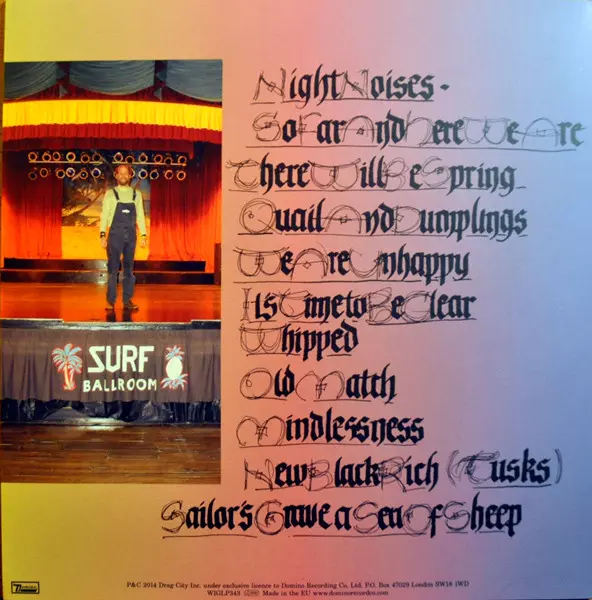 NightNoises -
SoFarAndHereWeAre
ThereWillBeSpring
QuailAndDumplings
WeAreUnhappy
ItsTimetoBeClear
Whipped
OldMatch
Mindlessness
NewBlackRich (Tusks)
Sailor'sGraveaSeaOfSheep
SURF
BALLROOM
P&C 2014 Drag City Inc. under exclusive licence to Domino Recording Co. Ltd. P.O. Box 47029 London SW18 1WD
WIGLP343 Made in the EU www.dominorecordco.com